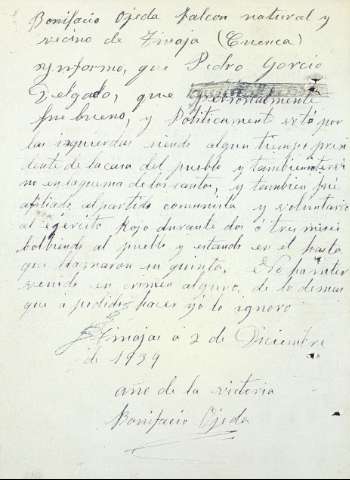 Bonifacio Ojeda Malcon natural y
vecino de Tinaja (Cuenca)
Ynformo, que Pedro Garcia
Delgado, que personalmente
fue bueno, y Politicamente voto por
las izquierdas siendo algun tiempo presi
dente de la casa del pueblo y tambien
no en la quema de los santos, y tambien fue
afiliado al partido comunista y voluntario
al Egercito Rojo durante dos ó tres meses
bolbiendo al pueblo y estando en el hasta
que llamaron su quinta. No
venido en crimen alguno, de lo demas
que a podido hacer yo lo ignoro
Tinajas á 2 de Diciembre
de 1939
año de la victoria
Bonifacio Ojeda